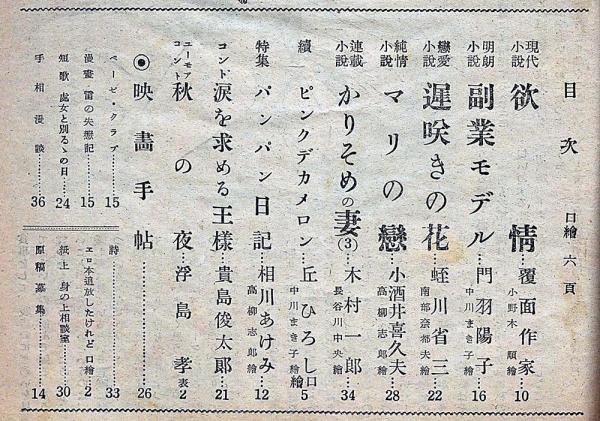 目次
口繪六頁
現代小説 欲情…覆面作家…10
小野木順繪
明朗小説 副業モデル…門羽陽子…16
中川まき子繪
戀愛小説 遲咲きの花…蛭川省三…22
南部奈都夫繪
純情小説 マリの戀…小酒井喜久夫…28
高柳志郎繪
連載小説 かりそめの妻(3)…木村一郎…34
長谷川中央繪
續 ピンクデカメロン…丘ひろし…口繪5
中川まき子繪
特集 パンパン日記…相川あけみ…12
高柳志郎繪
コント 涙を求める王様…貴島俊太郞…21
ユーモアコント 秋の夜…浮島孝…表2
◉映畫手帖…26
ペーゼ・クラブ…15
漫畫 雷の失戀記…15
短歌 處女と別るゝの日…24
手相漫談…36
詩…33
エロ本追放したけれど 口繪…2
紙上 身の上相談室…30
原稿募集…14